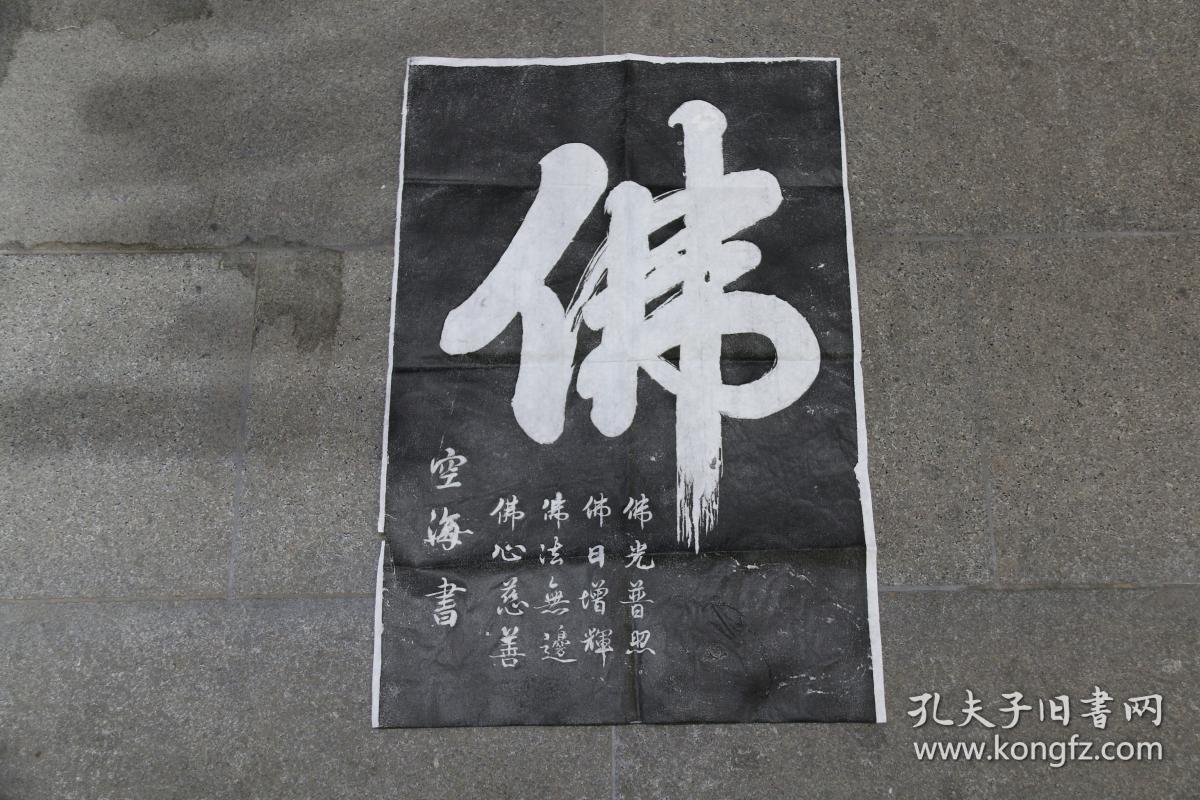 佛
佛光普照
佛日增輝
佛法無邊
佛心慈善
空海書
孔夫子旧書网
www.kongfz.com